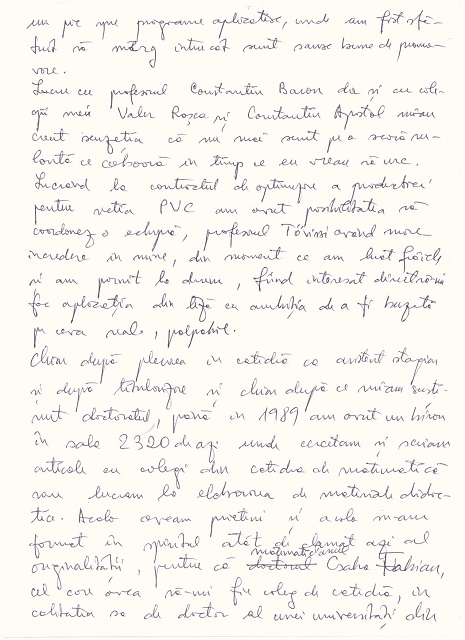 un pic spre programe aplicative, unde am fost sfă-
tuit să merg întrucât sunt șanse bune de promo-
vare.
Lucrul cu profesorul Constantin Bacon dar și cu cole-
gii mei Valer Roșca și Constantin Apostol mi-au
creat senzația că nu mai sunt pe o scară ru-
lantă ce coboară în timp ce eu vreau să urc.
Lucrând la contractul de optimizare a producției
pentru rețea PVC am avut posibilitatea să
coordonez o echipă, profesorul Tövissi având mare
încredere în mine, din moment ce am luat
și am pornit la drum, fiind interesat din
fac aplicația din teză cu ambiția de a fi bazată
pe ceva real, palpabil.
Chiar după plecarea în catedră ca asistent stagiar
și după titularizare și chiar după ce mi-am susți-
nut doctoratul, până în 1989 am avut un birou
în sala 2320 de azi unde cercetam și scriam
articole cu colegi din catedra de matematică
sau lucram la elaborarea de materiale didac-
tice. Acolo aveam prieteni și acolo m-am
format în spiritul atât de clamat azi al
originalității, pentru că matematicianul Csaba Fabian,
cel care avea să-mi fie coleg de catedră, în
calitatea sa de doctor al unei universități din